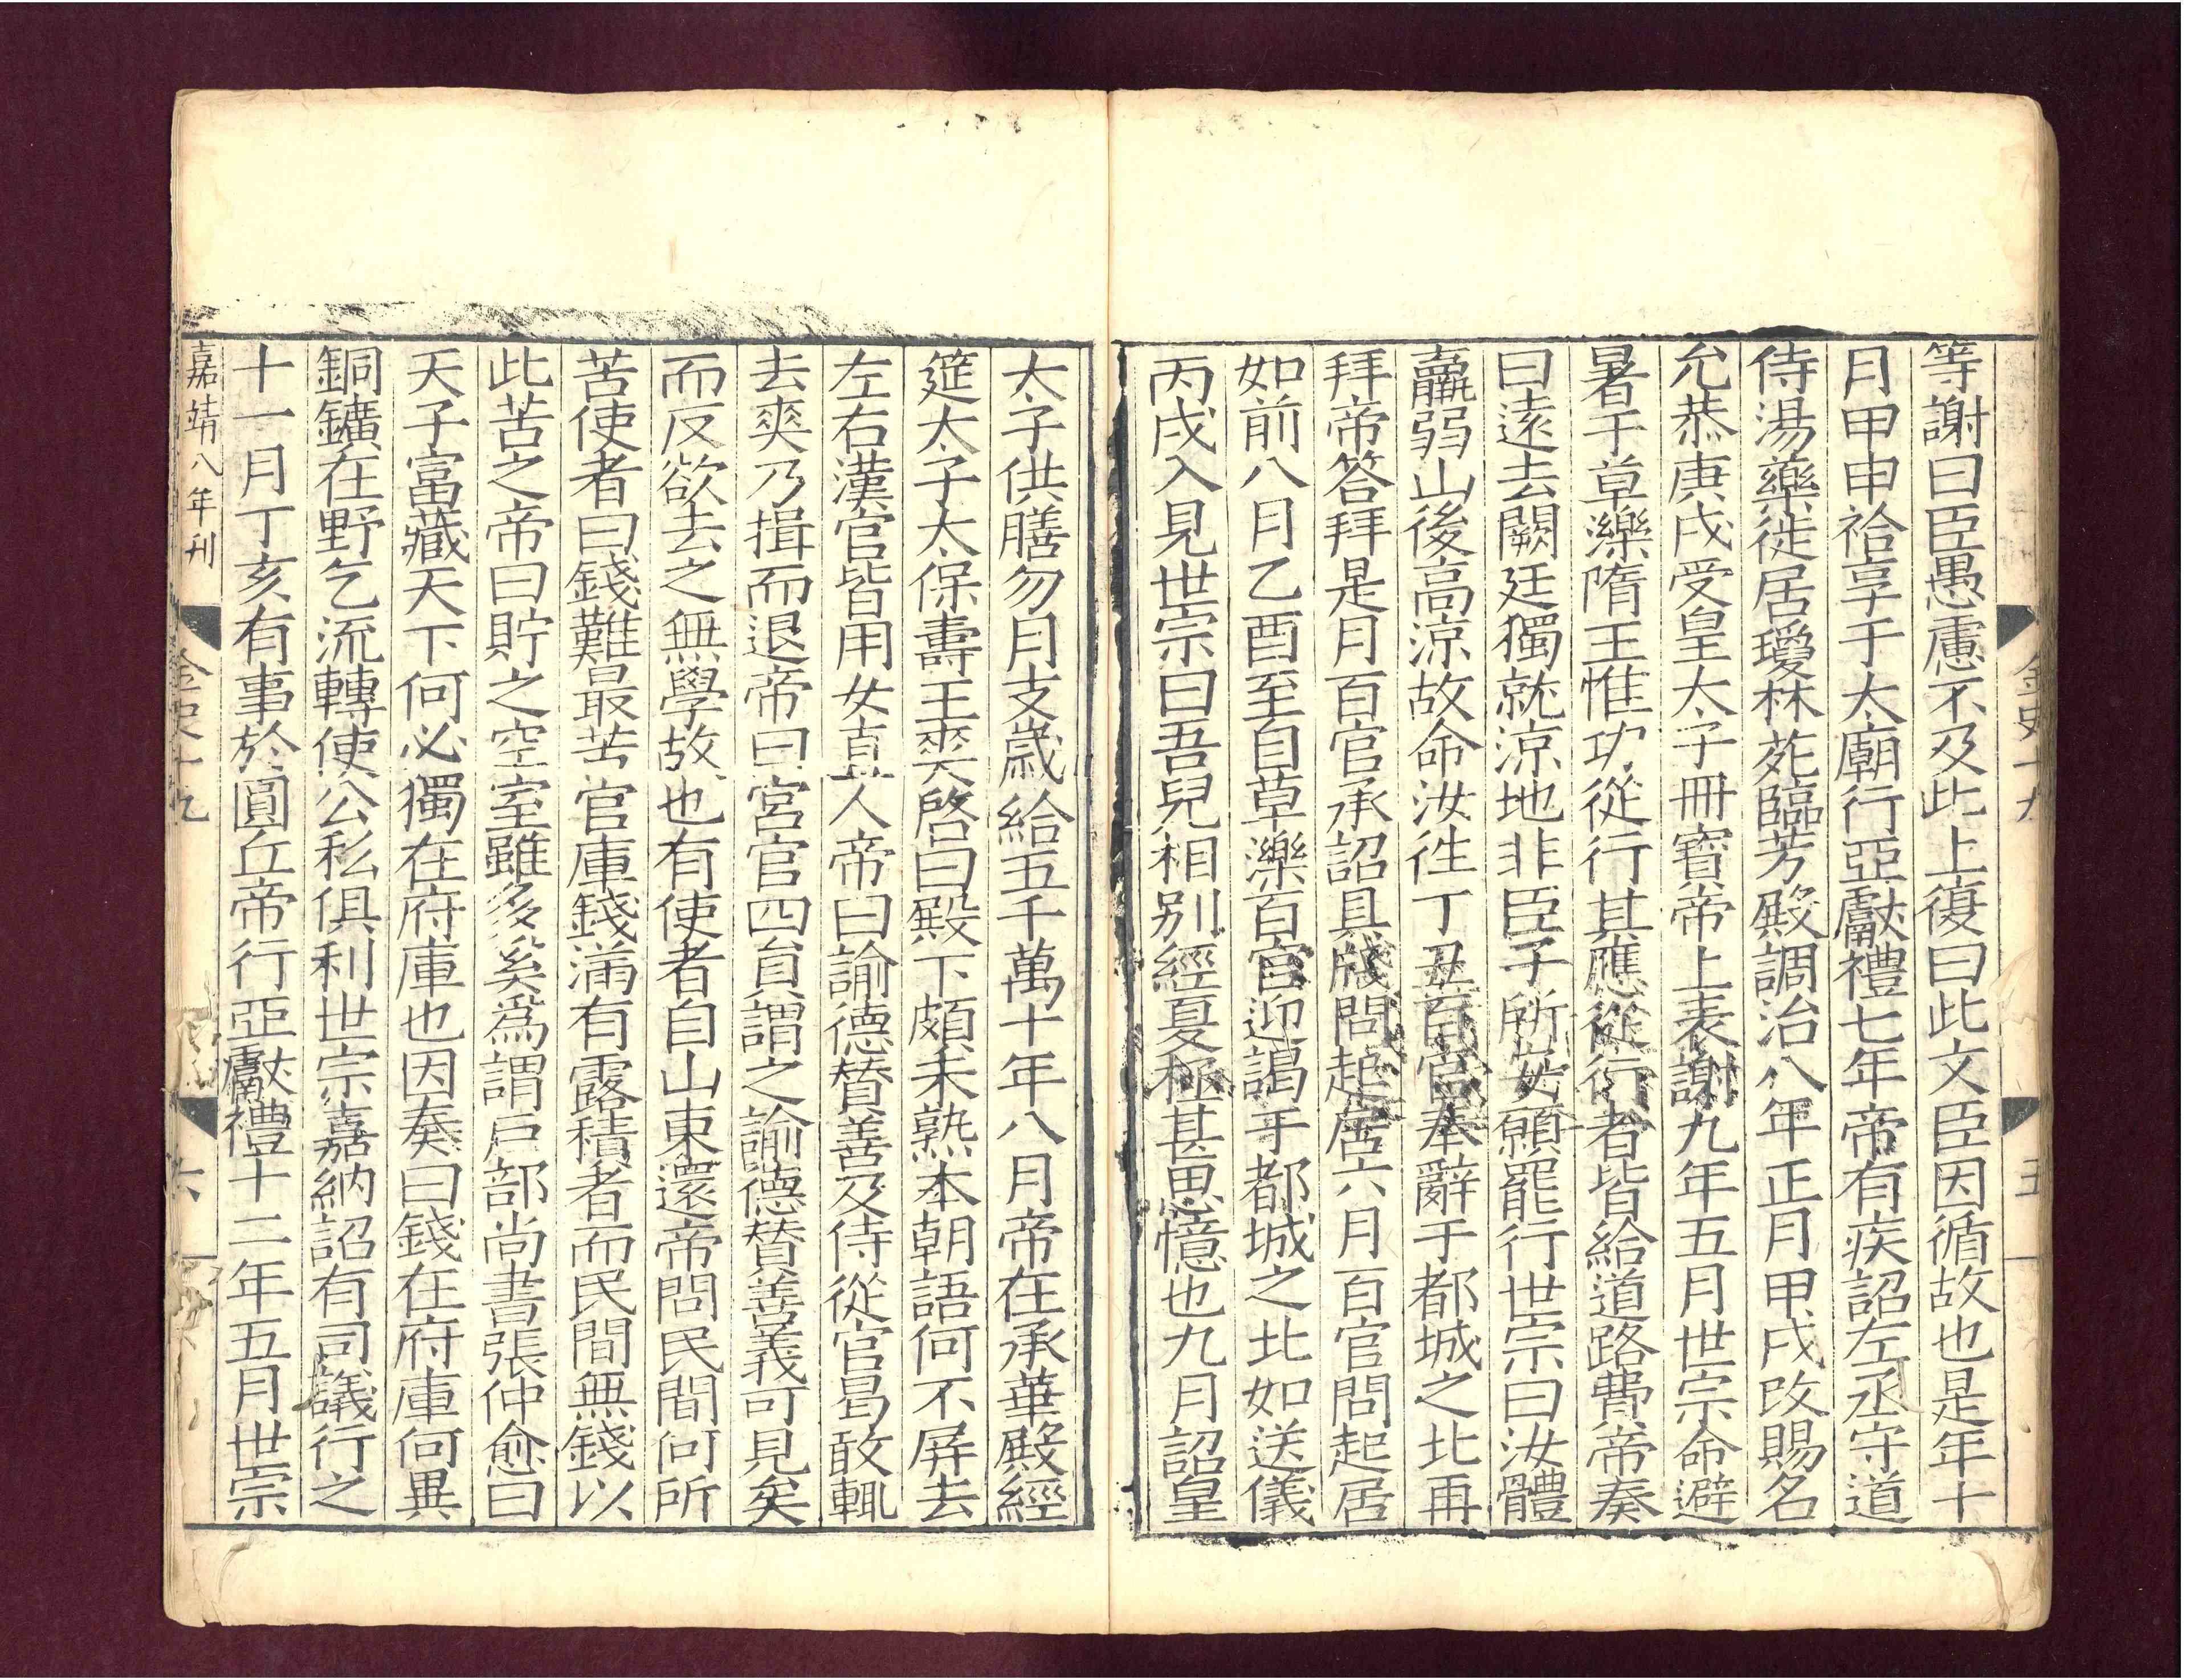 等謝曰臣愚慮不及此上復曰此文臣因循故也是年十
月甲申祫享于太廟行亞獻禮七年帝有疾詔左丞守道
侍湯藥徙居瓊林苑臨芳殿調治八年正月甲戌改賜名
允恭庚戌受皇太子冊寶帝上表謝九年五月世宗命避
暑于草濼隋王惟功從行其應從行者皆給道路費帝奏
曰遠去闕廷獨就涼地非臣子所安願罷行世宗曰汝體
羸弱山後高涼故命汝徃丁丑百官奉辭于都城之北再
拜帝答拜是月百官承詔具牋問起居六月百官問起居
如前八月乙酉至自草濼百官迎謁于都城之北如送儀
丙戌入見世宗曰吾兒相別經夏極甚思憶也九月詔皇
金史十九
五
太子供膳勿月支歲給五千萬十年八月帝在承華殿經
筵太子太保壽王爽啓曰殿下頗未熟本朝語何不屏去
左右漢官皆用女直人帝曰諭德贊善及侍從官曷敢輒
去爽乃揖而退帝曰宮官四員謂之諭德贊善義可見矣
而反欲去之無學故也有使者自山東還帝問民間何所
苦使者曰錢難最苦官庫錢滿有露積者而民間無錢以
此苦之帝曰貯之空室雖多奚爲謂戶部尚書張仲愈曰
天子富藏天下何必獨在府庫也因奏曰錢在府庫何異
銅鑛在野乞流轉使公私俱利世宗嘉納詔有司議行之
十一月丁亥有事於圓丘帝行亞獻禮十二年五月世宗
嘉靖八年刊
金史十九
六